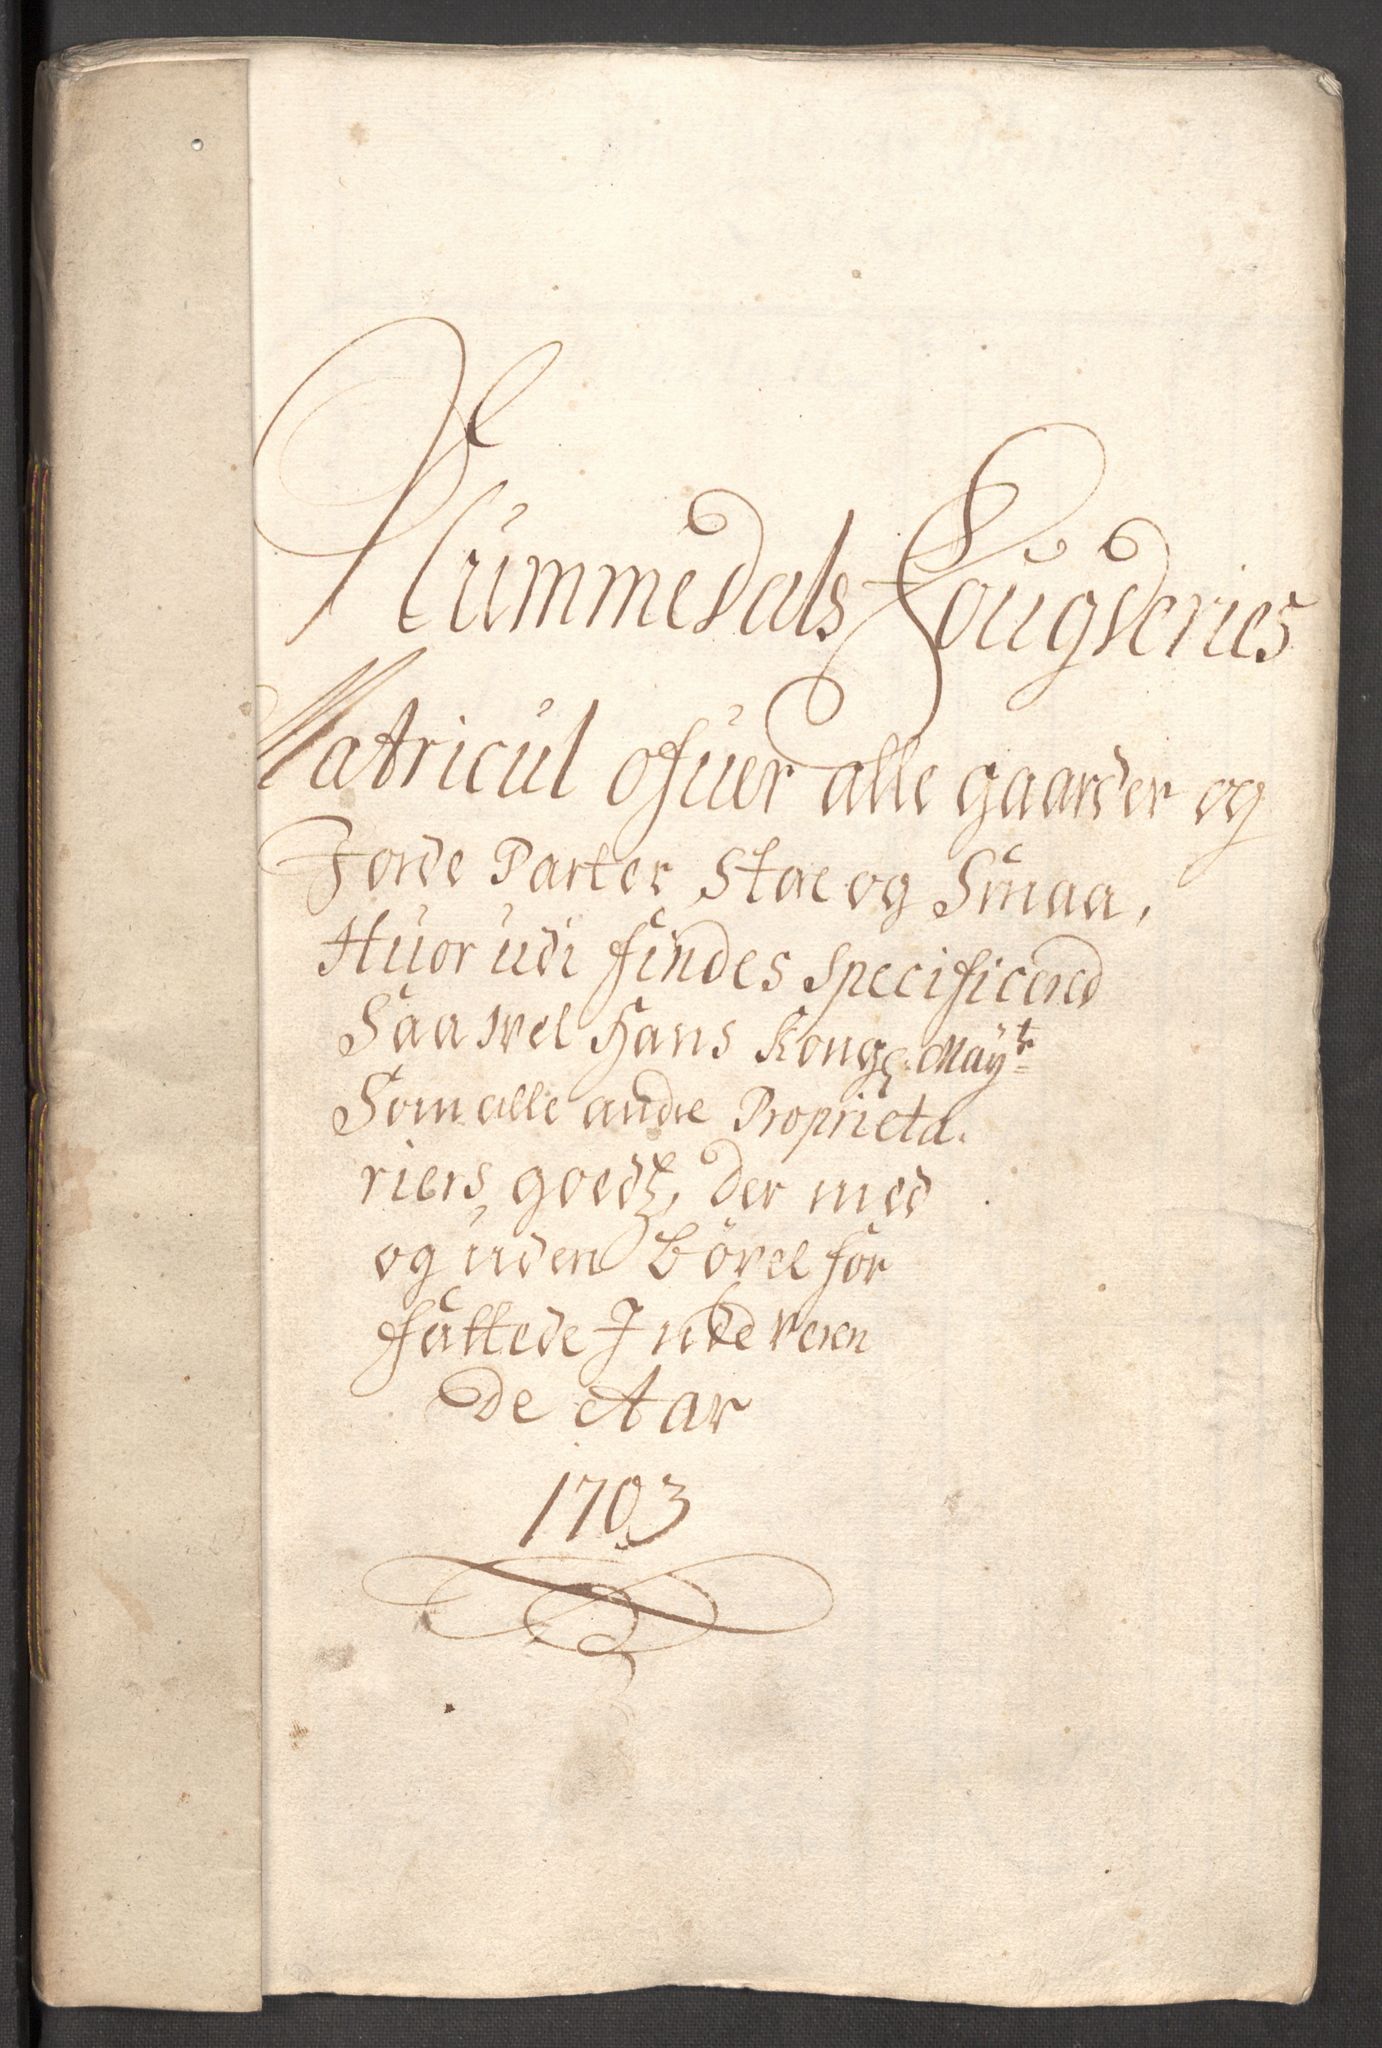 Nummedals Fougderies
Matricul ofuer alle gaarder og
Jorde Parter Stoe og Smaa,
Huor udi findes specificered
Saa vel Hans Kongl. Mayts
Som alle andre Proprieta-
riers goedz, der med
og uden böxel for
fattede Inde Veren
De Aar
1703